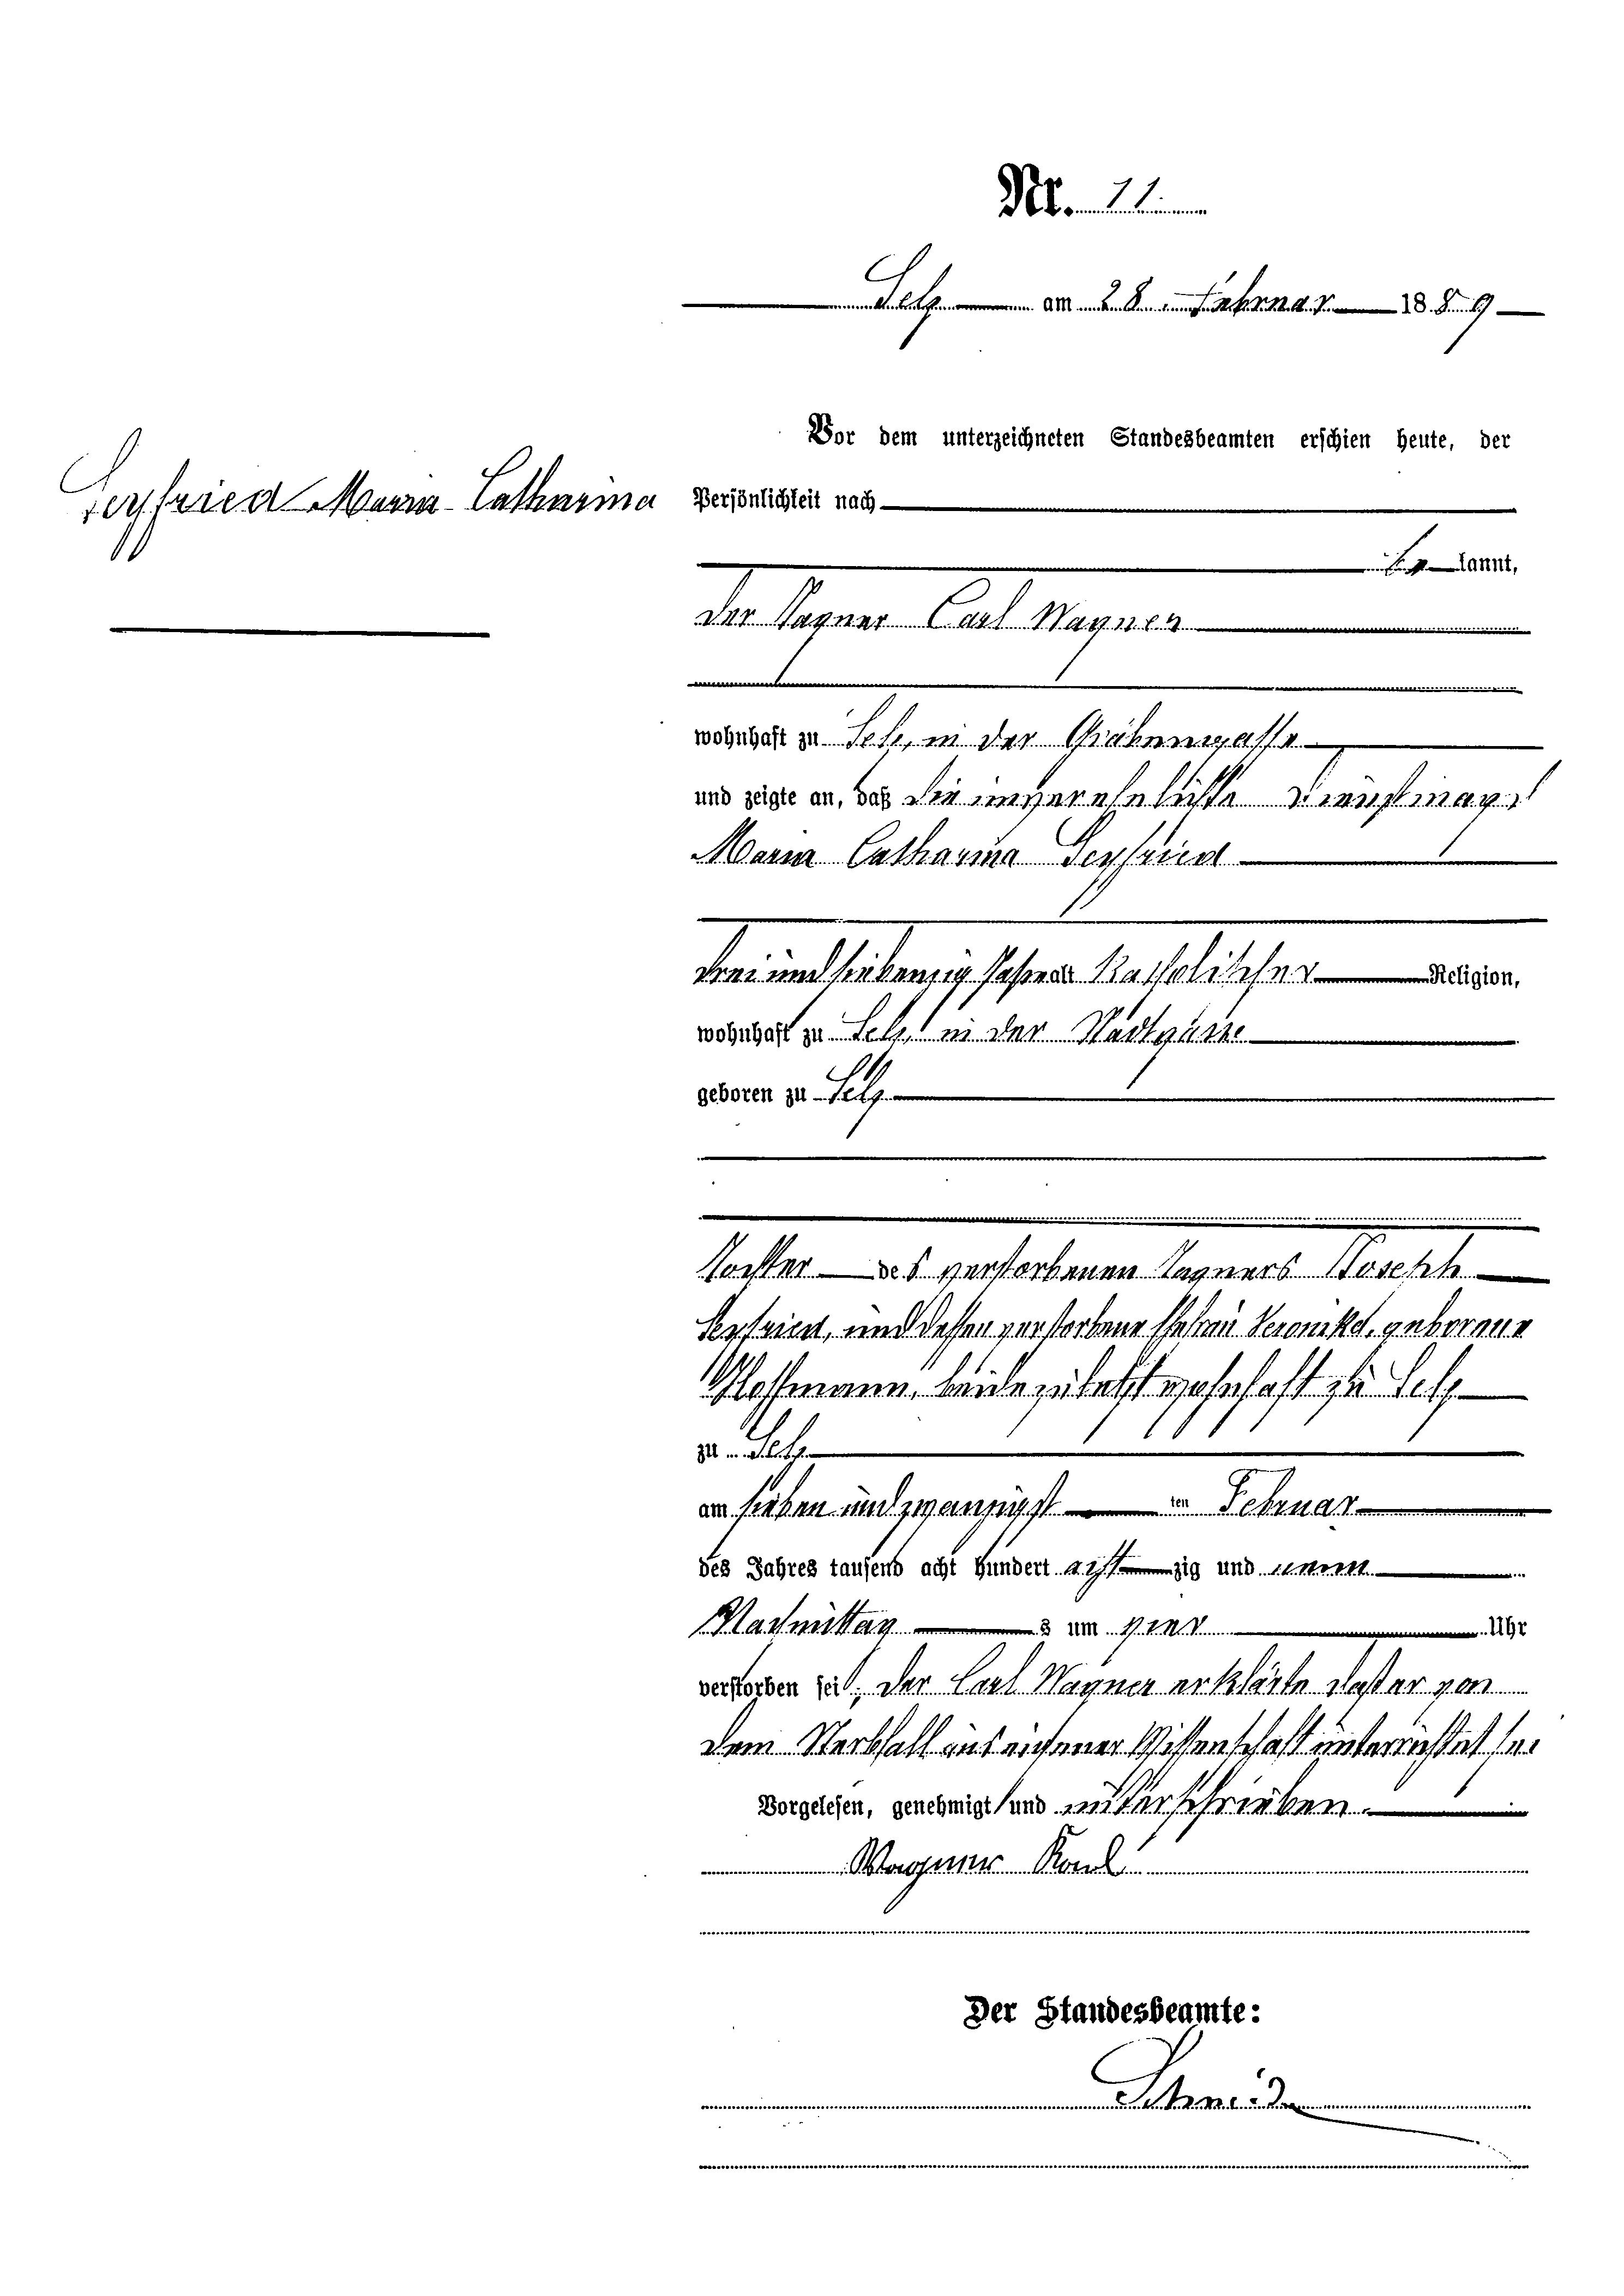 Nr. 11.
Selz am 28. Februar 1889
Vor dem unterzeichneten Standesbeamten erschien heute, der
Seyfried Maria Catharina
Persönlichkeit nach
be kannt,
der Tagner Carl Wagner
wohnhaft zu Selz, in der Gräbengasse
und zeigte an, daß die unverehelichte Dienstmagd
Maria Catharina Seyfried
drei und siebenzig Jahre alt Katholischer Religion,
wohnhaft zu Selz, in der Stadtgasse
geboren zu Selz
Tochter des verstorbenen Tagners Joseph
Seyfried, und dessen verstorbene Ehefrau Veronika, geborene
beide zuletzt wohnhaft zu Selz
zu Selz
am sieben und zwanzigst ten Februar
des Jahres tausend acht hundert acht zig und neun
Nachmittag s um vier Uhr
verstorben sei, der Carl Wagner erklärte daß er von
dem Sterbfall aus eigener Wissenschaft unterrichtet sei
Vorgelesen, genehmigt und unterschrieben.
Wagner Karl
Der Standesbeamte: